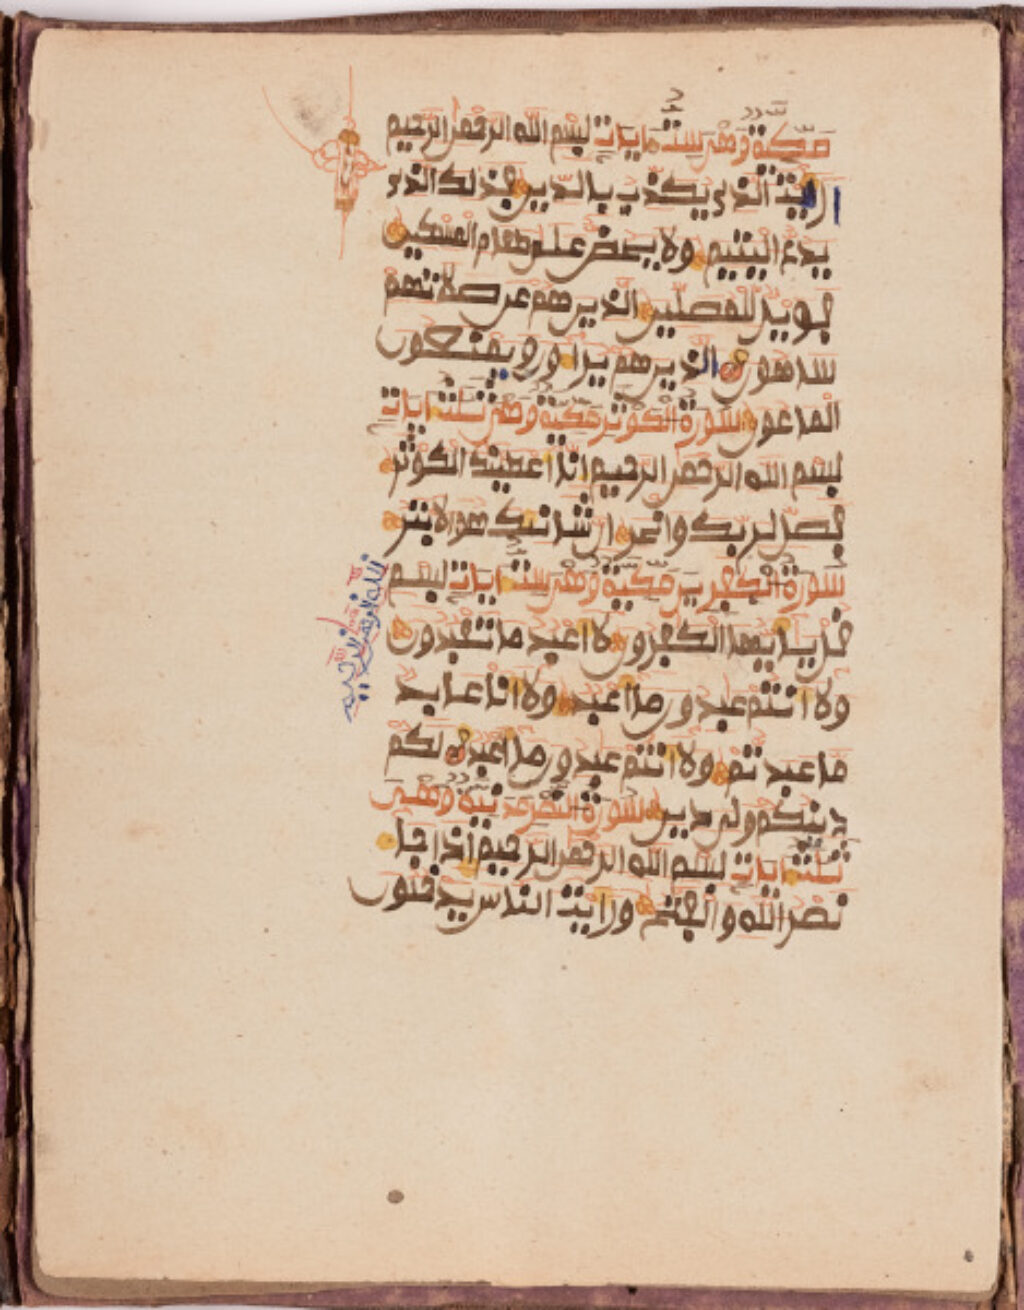 مكية وهى ست ءايات بسم الله الرحمن الرحيم
اريت الذى يكذب بالدين فذلك الذى
يدع اليتيم ولا يحض على طعام المسكين
فويل للمصلين الذين هم عن صلاتهم
ساهون الذين هم يراءون ويمنعون
الماعون سورة الكوثر مكية وهى ثلث ايات
بسم الله الرحمن الرحيم انا اعطينك الكوثر
فصل لربك وانحر ان شانئك هو الابتر
سورة الكفرين مكية وهى ست ايات بسم
الله الرحمن الرحيم
قل يايها الكفرون لا اعبد ما تعبدون
ولا انتم عبدون ما اعبد ولا انا عابد
ما عبدتم ولا انتم عبدون ما اعبد لكم
دينكم ولى دين سورة النصر مدنية وهى
ثلث ايات بسم الله الرحمن الرحيم اذا جا
نصر الله والفتح ورايت الناس يدخلون